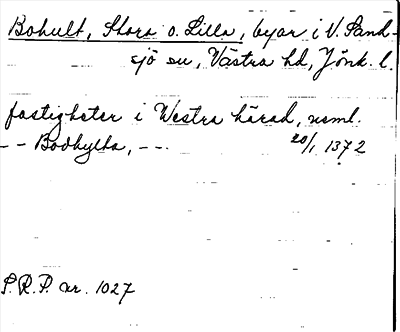 Bohult, Stora o. Lilla, byar i V. Sand-
sjö sn, Västra hd, Jönk. l.
fastigheter i Westra härad, nsml.
- - Bodhylta, - - 20/1 1372
S.R.P. nr. 1027